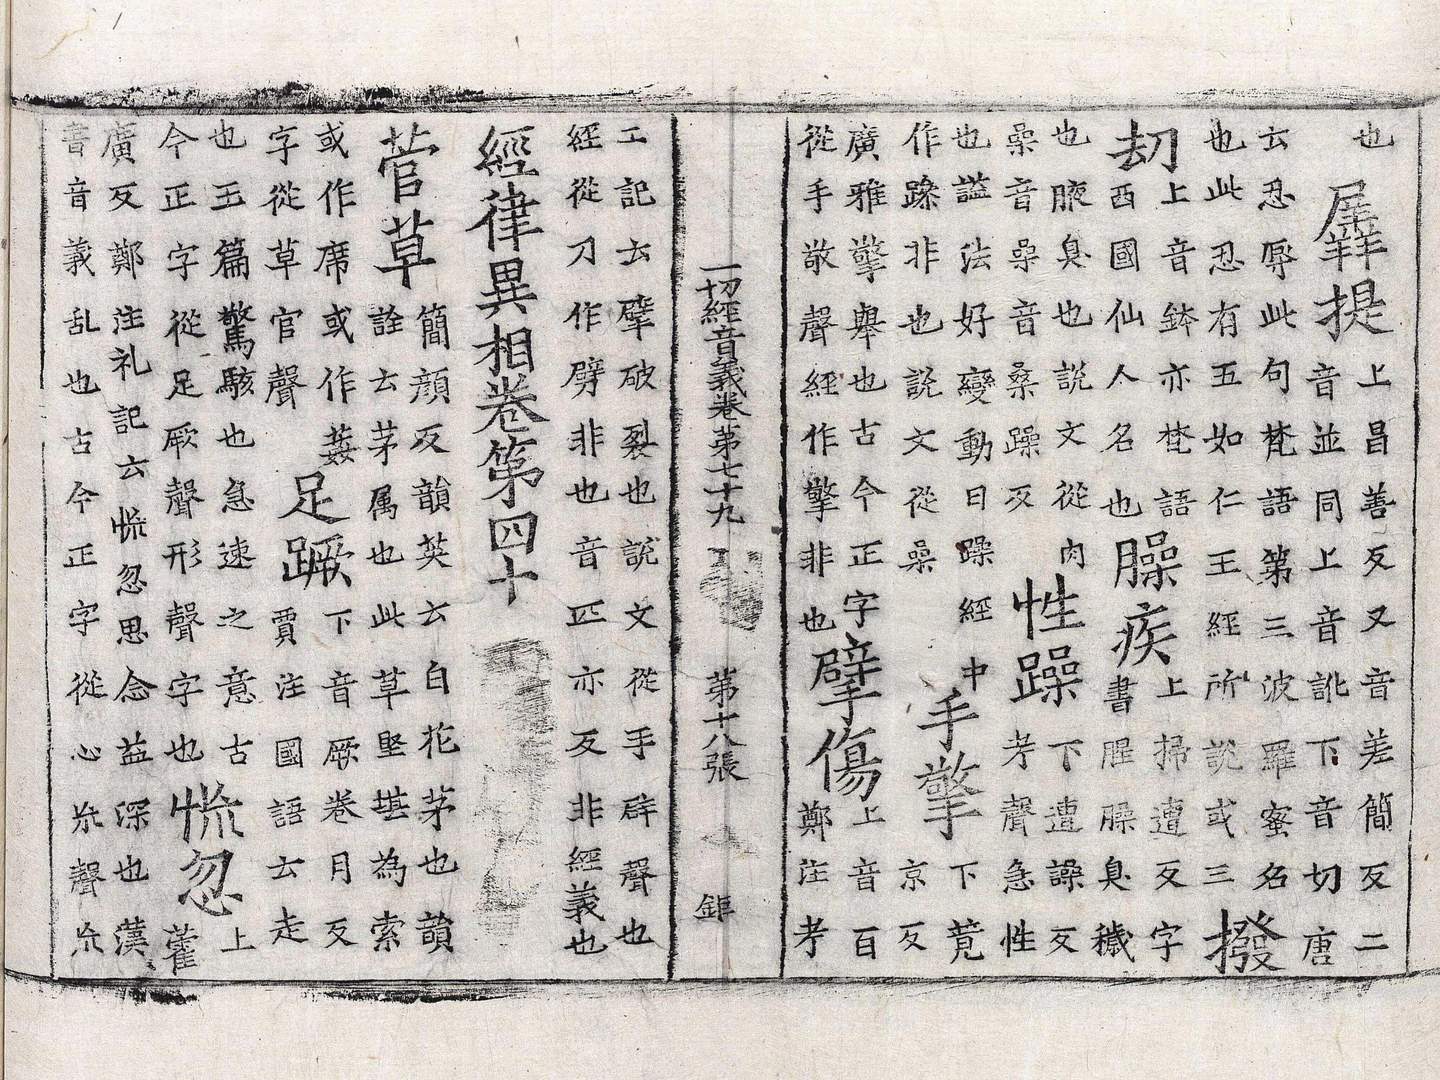 也
羼提
上昌善反又音差簡反二
音並同上音訛下音切唐
云忍辱此句梵語第三波羅蜜名
也此忍有五如仁王經所說或三
撥
劫
上音鉢亦梵語
西國仙人名也
臊疾
上掃遭反字
書腥臊臭穢
也腋臭也說文從肉
喿音喿音桑躁反
性躁
下遭譟反
考聲急性
也謚法好變動曰躁經中
作躁非也說文從喿
手擎
下竟
京反
廣雅擎舉也古今正字
從手敬聲經作擎非也
擘傷
上音百
鄭注考
一切經音義卷第七十九 第十八張 鉅
工記云擘破裂也說文從手辟聲也
經從刀作劈非也音匹亦反非經義也
經律異相卷第四十
菅草
簡顏反韻英云白花茅也韻
詮云茅属也此草堅堪為索
或作席或作葌
字從草官聲
足蹶
下音厥卷月反
賈注國語云走
也玉篇驚駭也急速之意古
今正字從足厥聲形聲字也
慌忽
上
藿
廣反鄭注礼記云慌忽思念益深也漢
書音義乱也古今正字從心㐬聲㐬